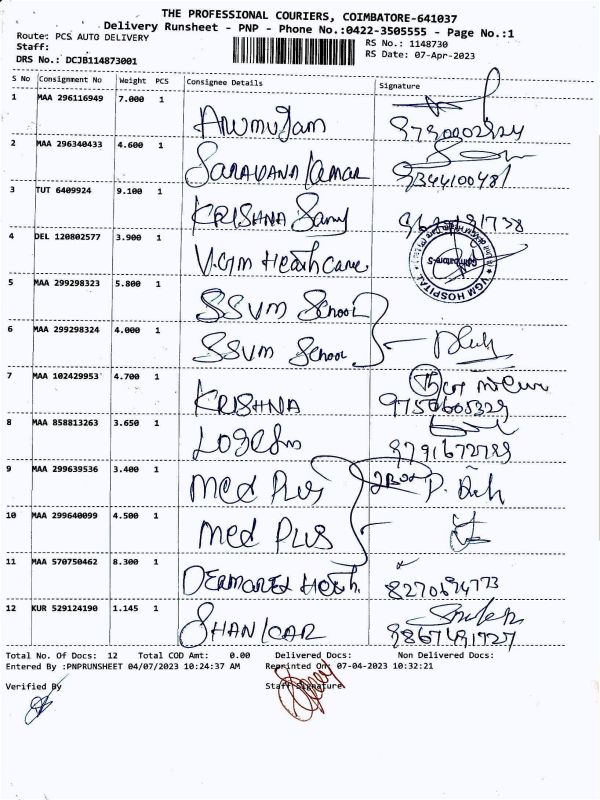 THE PROFESSIONAL COURIERS, COIMBATORE-641037
Delivery Runsheet - PNP - Phone No.:0422-3505555 - Page No.:1
Route: PCS AUTO DELIVERY
RS No.: 1148730
Staff:
RS Date: 07-Apr-2023
DRS No.: DCJB114873001
S No Consignment No Weight PCS Consignee Details Signature
1 MAA 296116949 7.000 1 Arumugam
2 MAA 296340433 4.600 1 SARAVANA Kumar 9344100481
3 TUT 6409924 9.100 1 KRISHNA Samy
4 DEL 120802577 3.900 1 V.G.M Health Care
VGM HOSPITAL
5 MAA 299298323 5.800 1 SSVM School
6 MAA 299298324 4.000 1 SSVM School
7 MAA 102429953 4.700 1 KRISHNA 9750605329
8 MAA 858813263 3.650 1 LOGESh
9 MAA 299639536 3.400 1 Med Plus 2Box
10 MAA 299640099 4.500 1 Med Plus
11 MAA 570750462 8.300 1
12 KUR 529124190 1.145 1 SHANKAR
Total No. Of Docs: 12 Total COD Amt: 0.00 Delivered Docs: Non Delivered Docs:
Entered By :PNPRUNSHEET 04/07/2023 10:24:37 AM Reprinted On: 07-04-2023 10:32:21
Verified By Staff Signature